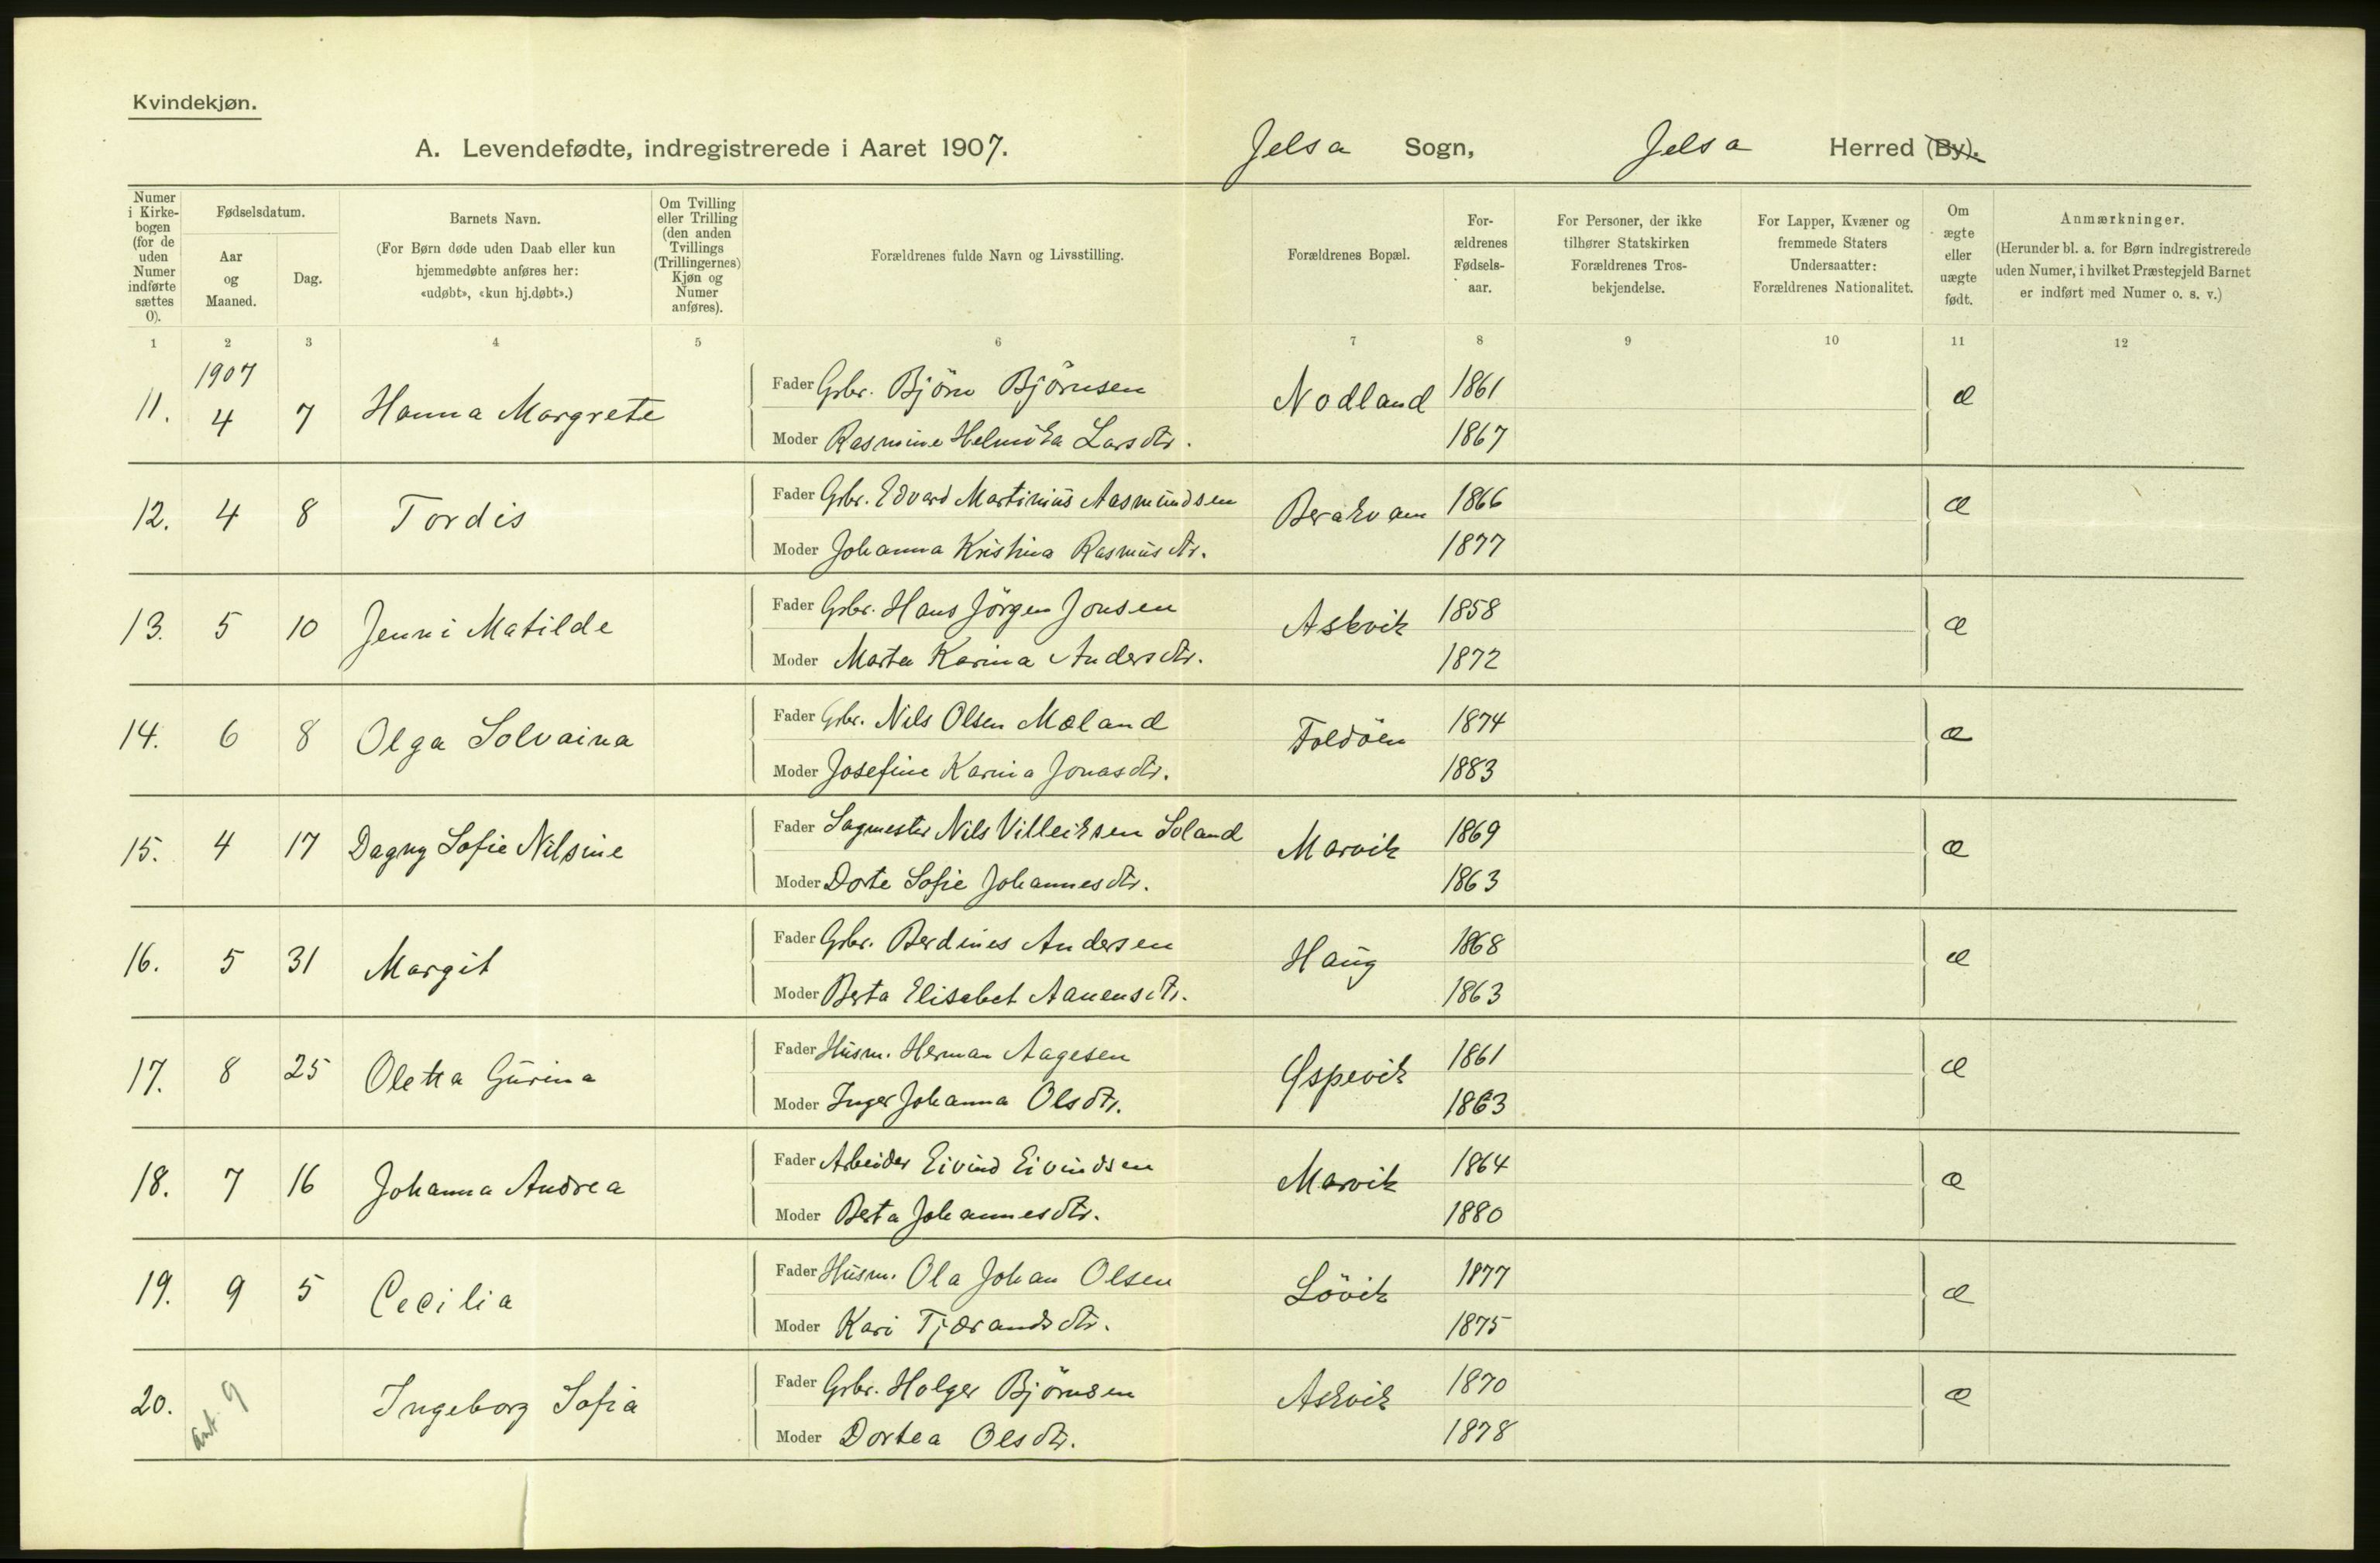 Kvindekjøn.
A. Levendefødte, indregistrerede i Aaret 1907. Jelsa Sogn, Jelsa Herred (By).
Numer i Kirkebogen (for de uden Numer indførte sættes 0).
Fødselsdatum.
Aar og Maaned.
Dag.
Barnets Navn.
(For Børn døde uden Daab eller kun
hjemmedøbte anføres her:
«udøbt», «kun hj.døbt».)
Om Tvilling
eller Trilling
(den anden
Tvillings
(Trillingernes)
Kjøn og
Numer
anføres).
Forældrenes fulde Navn og Livsstilling.
Forældrenes Bopæl.
For-
ældrenes
Fødsels-
aar.
For Personer, der ikke
tilhører Statskirken
Forældrenes Tros-
bekjendelse.
For Lapper, Kvæner og
fremmede Staters
Undersaatter:
Forældrenes Nationalitet.
Om
ægte
eller
uægte
født.
Anmærkninger.
(Herunder bl. a. for Børn indregistrerede
uden Numer, i hvilket Præstegjeld Barnet
er indført med Numer o. s. v.)
1 2 3 4 5 6 7 8 9 10 11 12
1907
11. 4 7 Hanna Margrete Fader Gbr. Björn Björnsen Nodland 1861 æ
Moder Rasmine Helmika Larsdtr. 1867
12. 4 8 Tordis Fader Gbr. Edvard Martinius Aasmundsen Berakvam 1866 æ
Moder Johanna Kristina Rasmusdtr. 1877
13. 5 10 Jenni Matilde Fader Gbr. Hans Jörgen Jonsen Askvik 1858 æ
Moder Marta Karina Andersdtr. 1872
14. 6 8 Olga Solvaina Fader Gbr. Nils Olsen Mæland Foldöen 1874 æ
Moder Josefine Karina Jonasdtr. 1883
15. 4 17 Dagny Sofie Nilsine Fader Sagmester Nils Villeiksen Soland Marvik 1869 æ
Moder Dorte Sofie Johannesdtr. 1863
16. 5 31 Margit Fader Gbr. Berdines Andersen Haug 1868 æ
Moder Berta Elisabet Aanensdtr. 1863
17. 8 25 Oletta Gurina Fader Husm. Herman Aagesen Øspevik 1861 æ
Moder Inger Johanna Olsdtr. 1863
18. 7 16 Johanna Andrea Fader Arbeider Eivind Eivindsen Marvik 1864 æ
Moder Berta Johannesdtr. 1880
19. 9 5 Cecilia Fader Husm. Ola Johan Olsen Lövik 1877 æ
Moder Kari Tjærandsdtr. 1875
20. ant. 9 Ingeborg Sofia Fader Gbr. Holger Björnsen Askvik 1870 æ
Moder Dortea Olsdtr. 1878